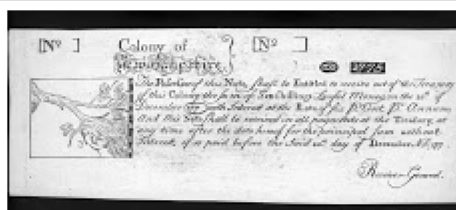 [No ] Colony of [No ]
Newhampshire
The Possessor of this Note, shall be Entitled to receive out of the Treasury
of this Colony the Sum of Ten Shillings Lawful Money, on the
December with Interest at the Rate of Six Pr Cent Pr Annum
And this Note shall be received in all payments at the Treasury, at
any time after the date hereof for the principal sum without
Interest, if so paid before the said day of December, A.D. 177
Receiver General.